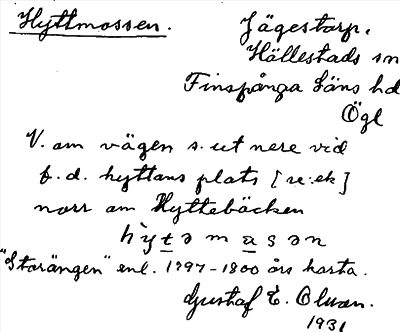 Hyttmossen.
Jägestorp.
Hällestads sn
Finspånga läns hd
Ögl
V. om vägen s. ut nere vid
f. d. hyttans plats [re: ek]
norr om Hyttebäcken
hỳtəmasən
"Storängen" enl. 1797-1800 års karta.
Gustaf E. Olson.
1931